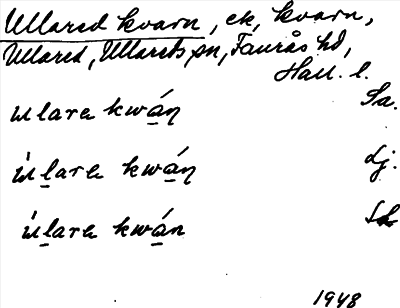 Ullared kvarn, ek, kvarn,
Ullared, Ullareds sn, Faurås hd,
Hall. l.
ullara kwáṇ Sa.
úllara kwáṇ dj.
úllara kwán Sk
1948